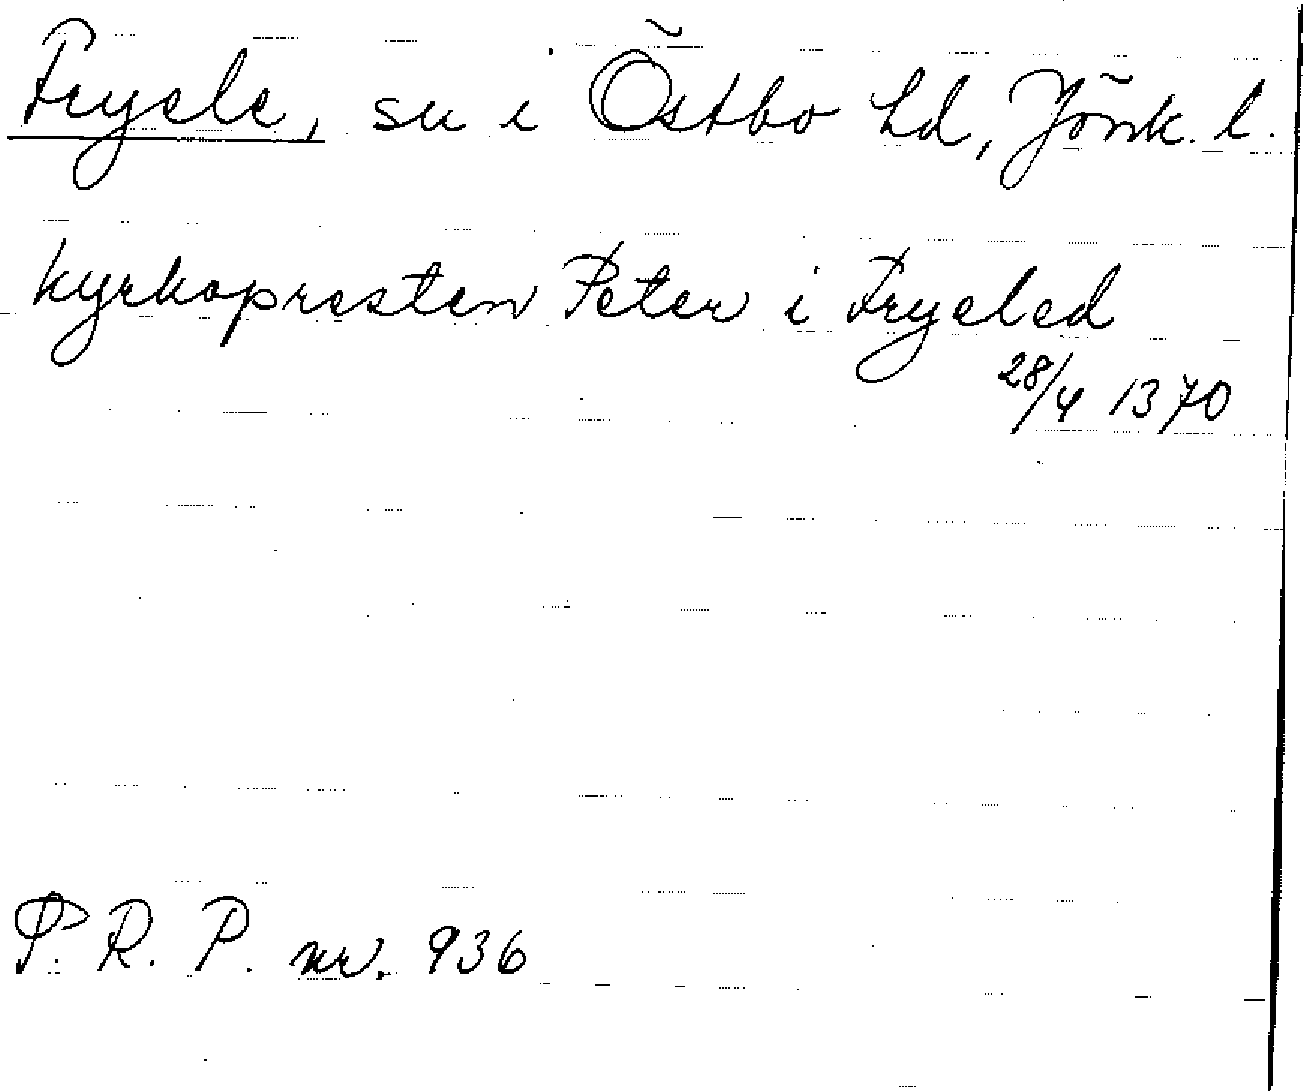 Fryele, sn i Östbo hd, Jönk. l.
kyrkopresten Peter i Fryeled
28/4 1370
P. R. P. nr. 936